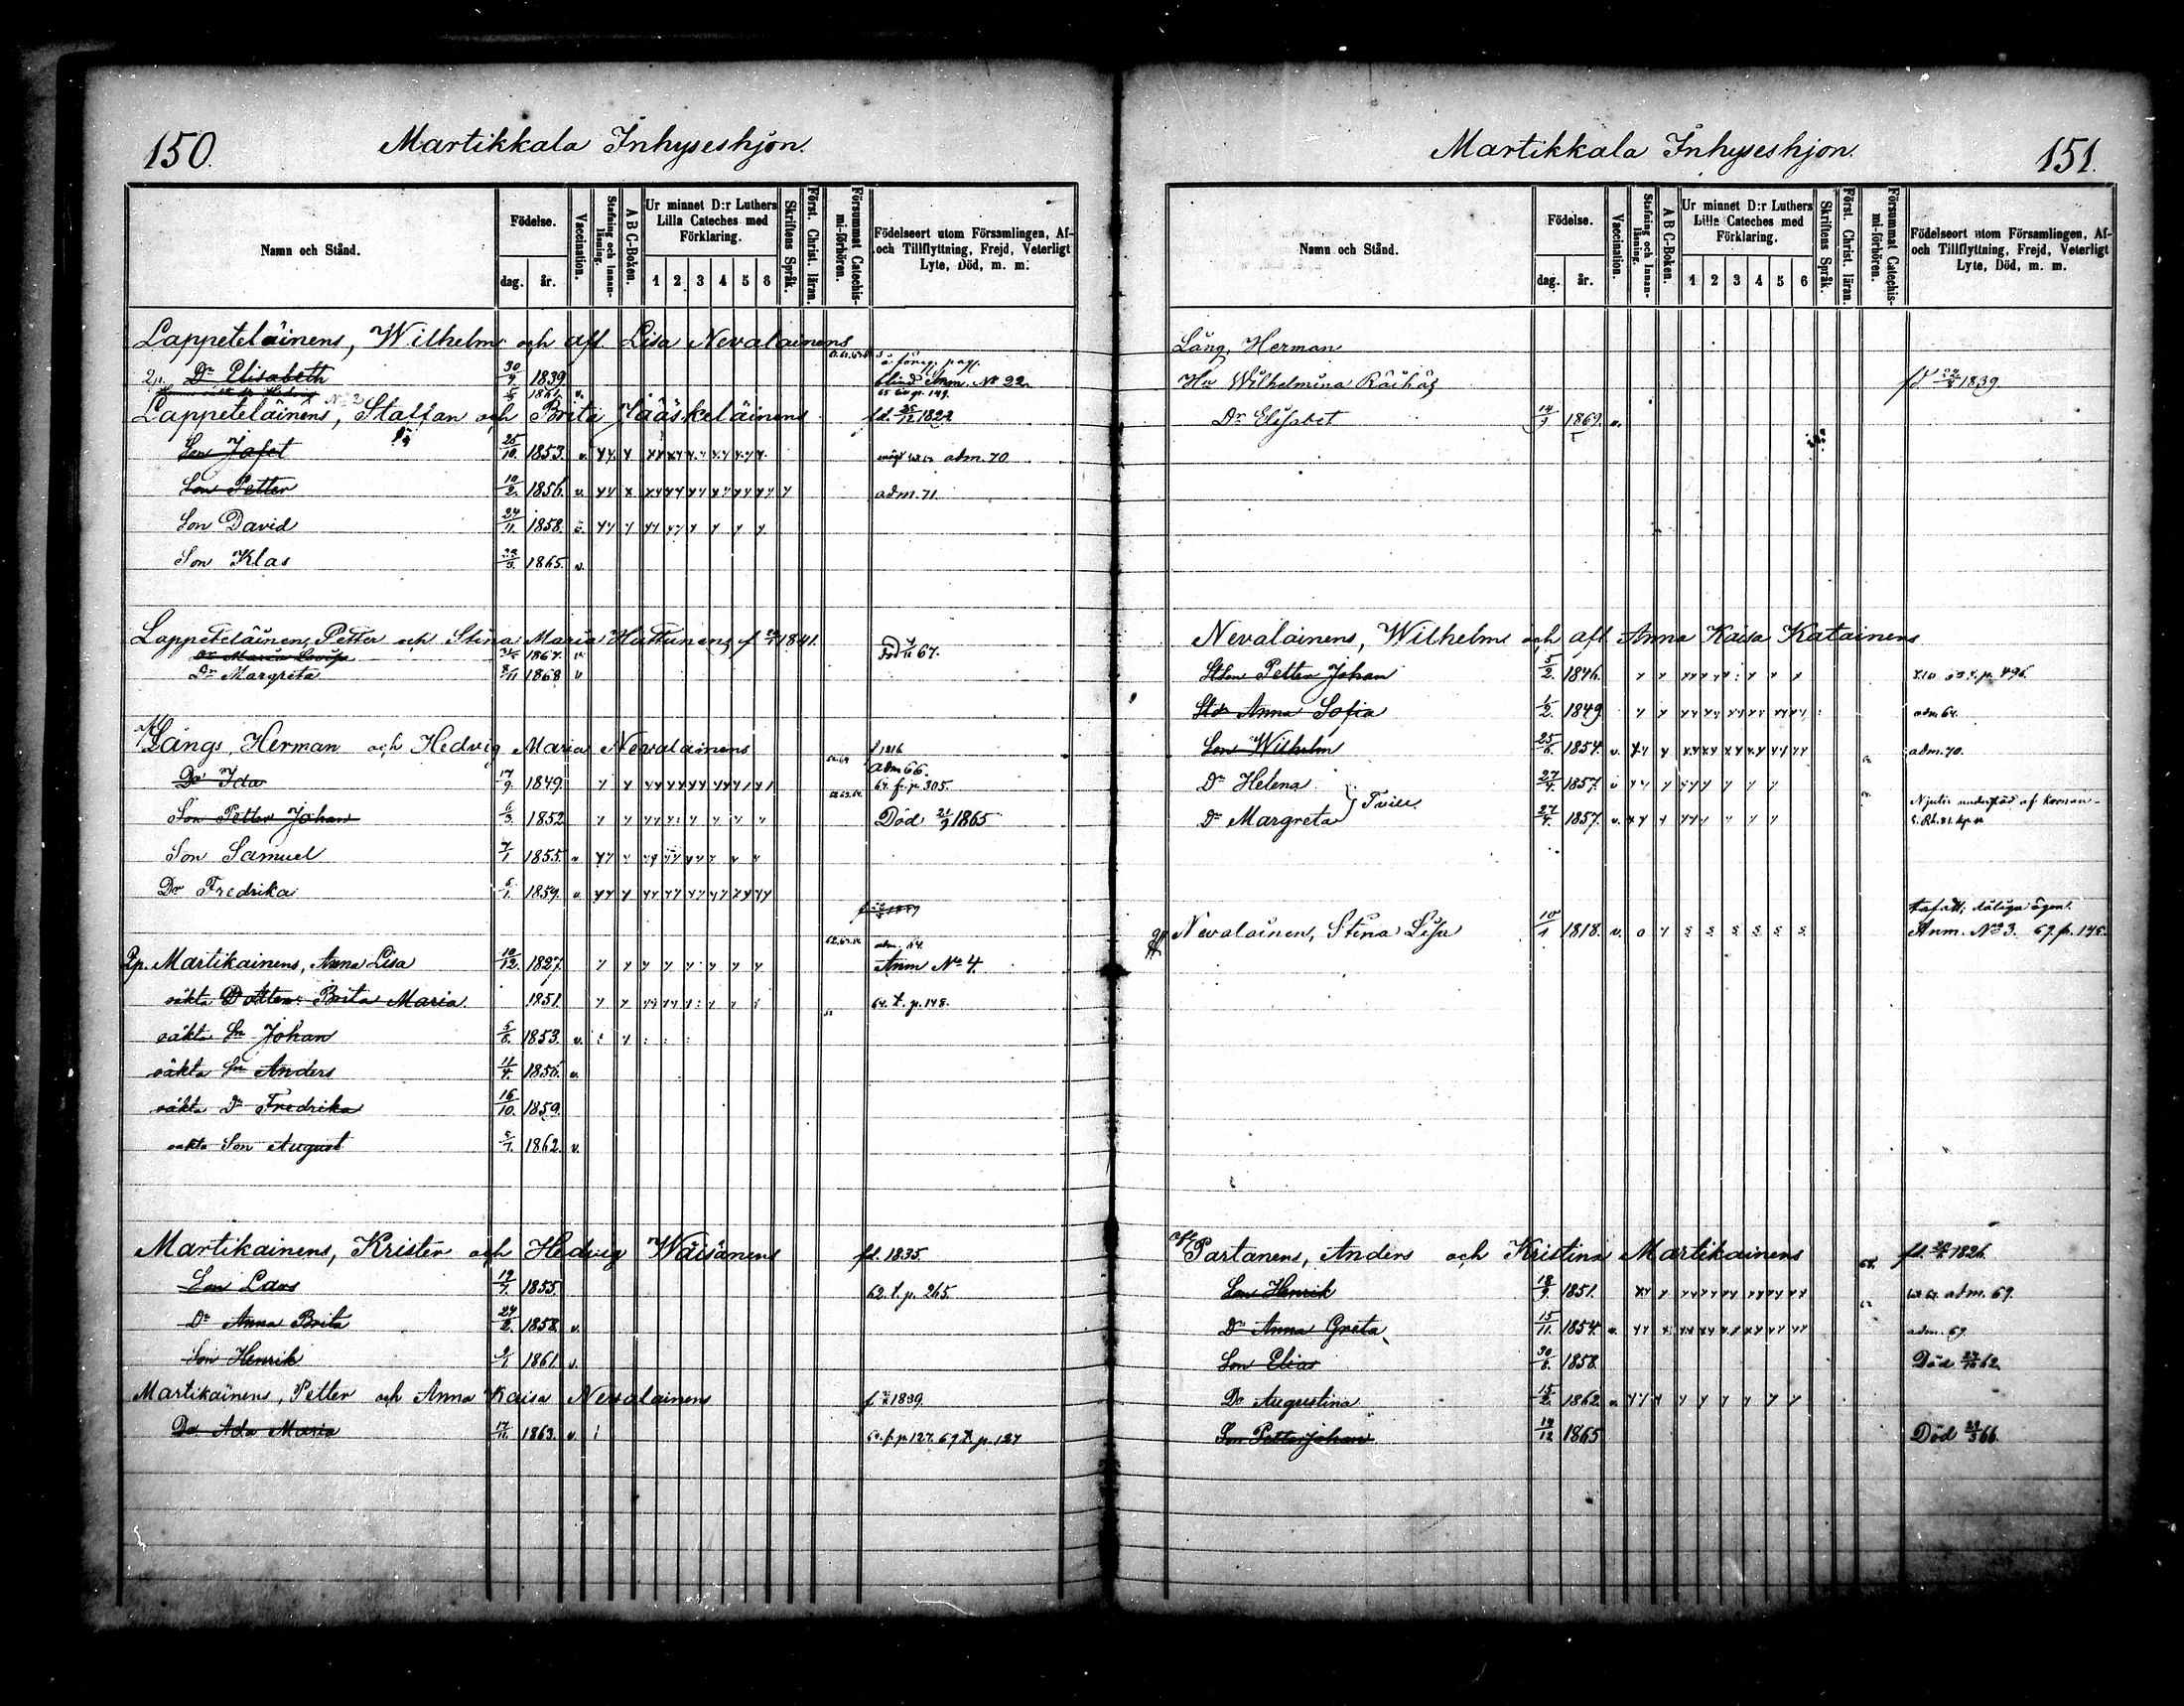 150.
Martikkala Inhyseshjon.
Namn och Stånd.
Födelse.
dag. år.
Vaccination.
Stafning och Innanläsning.
A B C-Boken.
Ur minnet D:r Luthers Lilla Cateches med Förklaring.
1 2 3 4 5 6
Skriftens Språk.
Först. Christ. läran.
Försummat Catechismi-förhören.
Födelseort utom Församlingen, Af- och Tillflyttning, Frejd, Veterligt Lyte, Död, m. m.
Lappeteläinens, Wilhelms och afl Lisa Nevalainens
2p. Dr Elisabeth 30/4 1839 blind Anm. No 22.
Lappeteläinens, Staffan och Brita Jääskeläinens fd. 25/12 1822
Son Jafet 25/10. 1853. v. adm. 70
Son Petter 10/2. 1856. v. adm. 71.
Son David 24/11. 1858.
Son Klas 1865. v.
Lappeteläinen, Petter och Stina Maria Hattunens f 1841.
Dr Maria Lovisa 1867. v 67.
Dr Margreta 8/11 1868 v
Långs, Herman och Hedvig Maria Nevalainens f 1816
Dr Ida 17/9. 1849. adm 66. 64. f. p. 305.
Son Petter Johan 6/3. 1852 Död 1865
Son Samuel 7/1 1855. v
Dr Fredrika 5/1. 1859. v.
2p. Martikainens, Anna Lisa 12/12. 1827. Anm No 4.
oäkta Dotter Brita Maria 1851. 64. t. p. 148.
oäkta Sn Johan 5/8. 1853. v.
oäkta Sn Anders 11/4. 1856. v.
oäkta Dr Fredrika 16/10. 1859.
oäkta Son August 1862. v.
Martikainens, Krister och Hedvig Wäisänens fd. 1835.
Son Lars 19/7. 1855. 62. t. p. 265.
Dr Anna Brita 24/2. 1858. v.
Son Henrik 1861. v.
Martikainens, Petter och Anna Kaisa Nevalainens f 1839.
Dr Ada Maria 17/11. 1863. v.
Martikkala Inhyseshjon.
151.
Namn och Stånd.
Födelse.
dag. år.
Vaccination.
Stafning och Innanläsning.
A B C-Boken.
Ur minnet D:r Luthers Lilla Cateches med Förklaring.
1 2 3 4 5 6
Skriftens Språk.
Först. Christ. läran.
Försummat Catechismi-förhören.
Födelseort utom Församlingen, Af- och Tillflyttning, Frejd, Veterligt Lyte, Död, m. m.
Lång, Herman
Hu Wilhelmina Räihä 1839.
Dr Elisabet 14/9 1869. v.
Nevalainens, Wilhelms och afl Anna Kaisa Katainens
Petter Johan 5/2. 1846. p. 496.
Anna Sofia 1/2. 1849 adm 64.
Son Wilhelm 25/6. 1854. v. adm. 70.
Dr Helena 27/4. 1857. v
Dr Margreta Tvill. 27/4. 1857. v.
Nevalainen, Stina Lisa 10/1 1818. v. Anm. No 3. 67. p. 148.
afl Partanens, Anders och Kristina Martikainens fd. 1826.
Son Henrik 18/9. 1851. adm. 69.
Dr Anna Greta 15/11. 1854. v. adm. 69
Son Elias 30/6. 1858 Död 62
Dr Augustina 15/2. 1862. v.
Son Petter Johan 14/12 1865 Död 66.